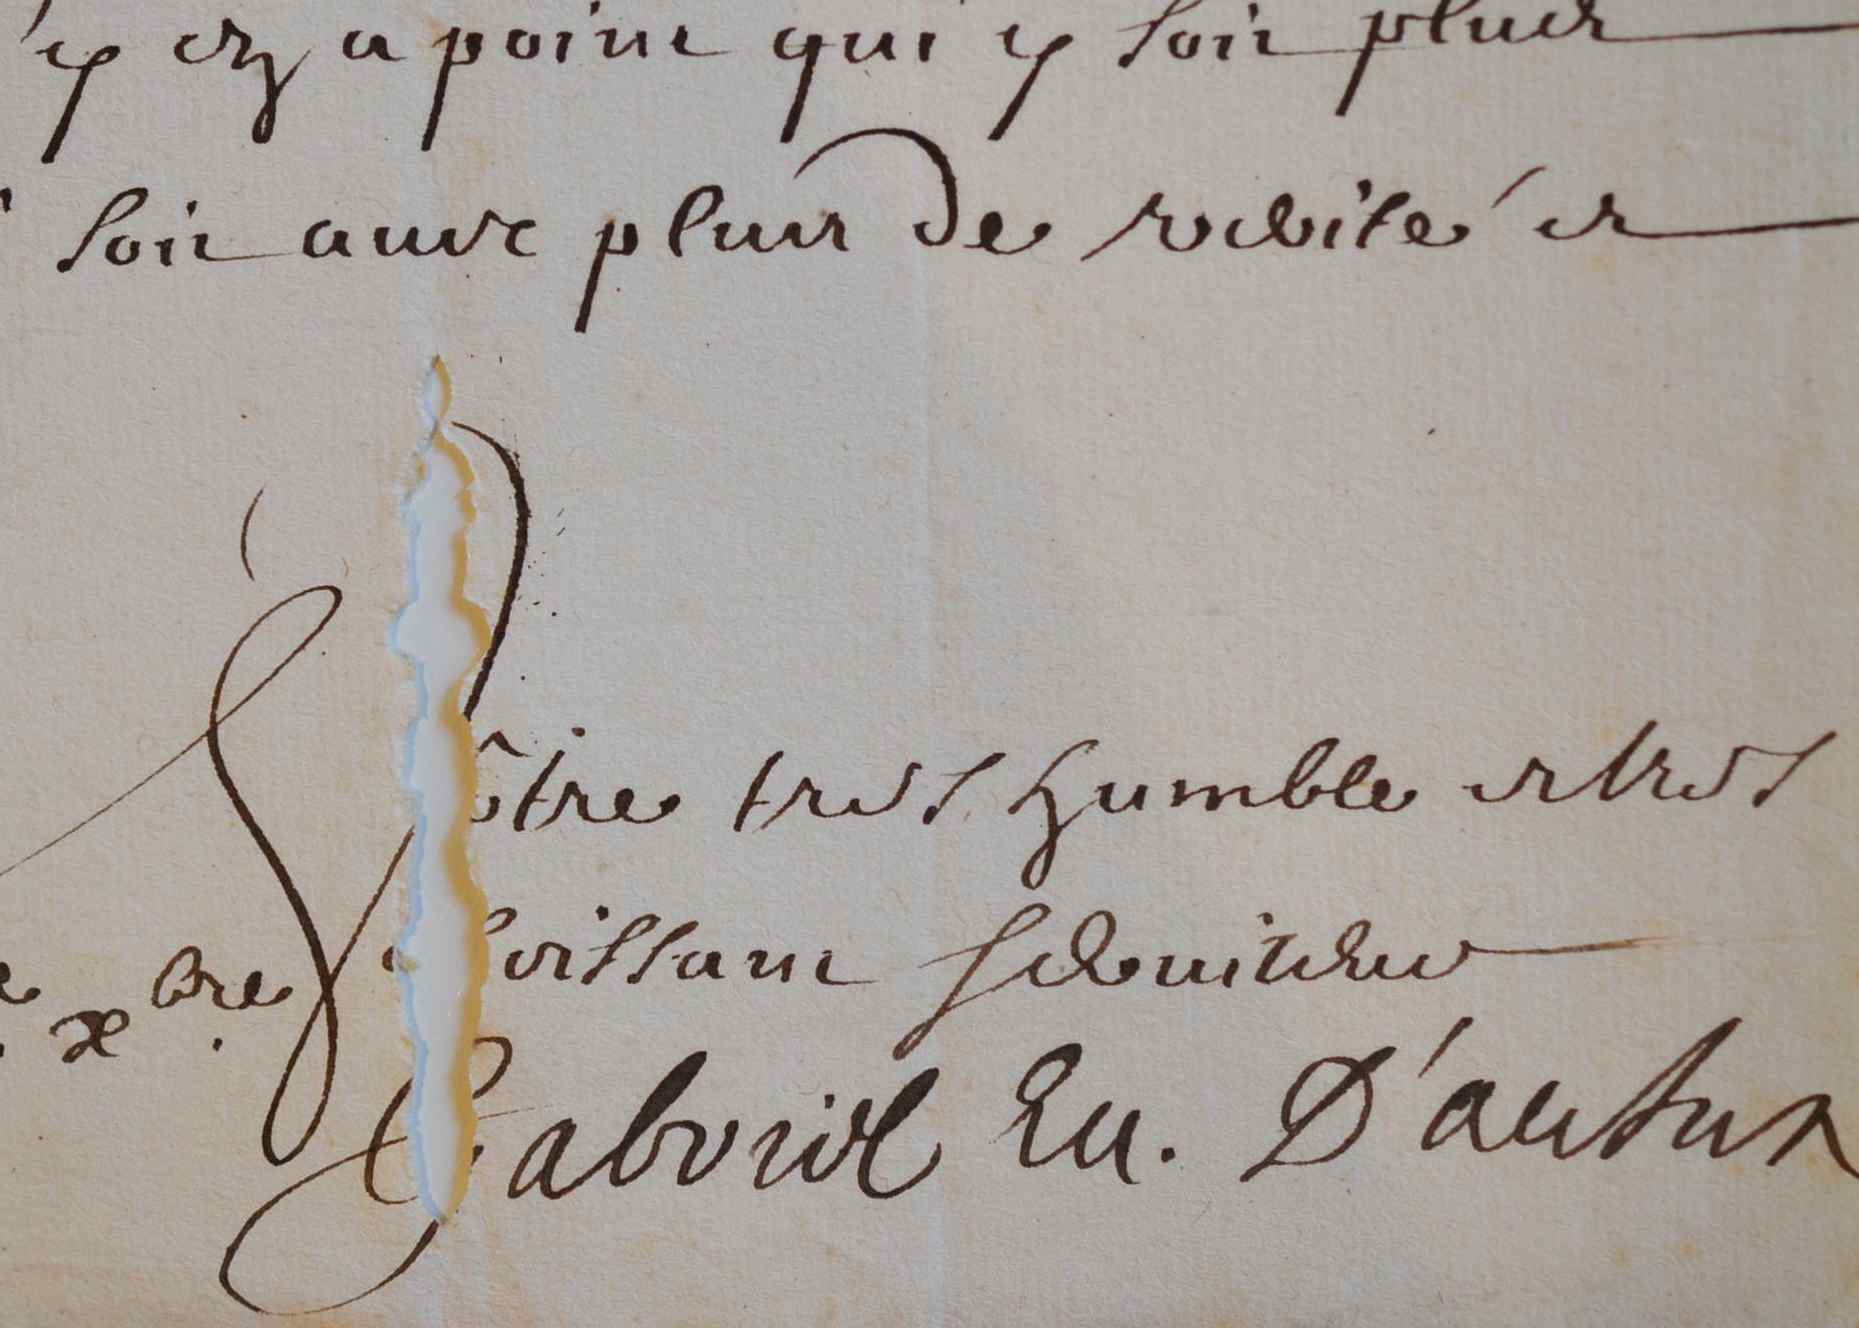 y en a point qui y soit plus
soit avec plus de verité et
Vôtre tres humble et tres
obeissant serviteur
e xbre
Gabriel Ev. D'autun